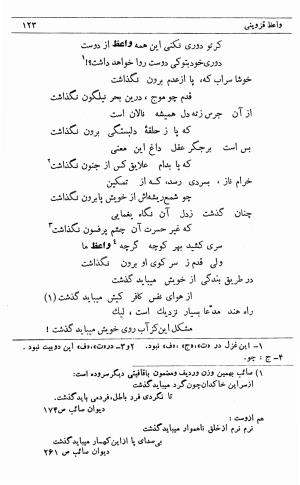 واعظ قزوینی
۱۲۳
کرتو دوری نکنی این همه واعظ از دوست
دوری خود بتو کی دوست روا خواهد داشت؟!۱
خوشا سراب که، پا از عدم برون نگذاشت
قدم چو موج، درین بحر نیلگون نگذاشت
از آن جرس زته دل همیشه نالان است
که پا ز حلقهٔ دلبستگی برون نگذاشت
بس است برجگر عقل داغ این معنی
که پا بدام علایق کس از جنون نگذاشت۲
خرام ناز، بسردی رسد، که از تمکین
چو شمع ریشه‌اش از خویش پا برون نگذاشت
چنان گذشت زدل آن نگاه یغمایی
که غیر حسرت آن چشم پرفسون نگذاشت۳
سری کشید بهر کوچه گرچه۴ واعظ ما
ولی قدم ز سر کوی او برون نگذاشت
در طریق بندگی از خویش میباید گذشت
از هوای نفس کافر کیش میباید گذشت (۱)
راه هند مدعا بسیار نزدیك است، لیك
مشکل این کز آب روی خویش میباید گذشت !
۱- این غزل در «ت»، «ج»، «ف» نبود. ۲و۳- در «ت»، «ف» این دو بیت نبود.
۴- ج : چو.
۱) صائب بهمین وزن وردیف ومضمون باقافیتی دیگر سروده است:
از سر این خاکدان چون گرد میباید گذشت
تا نگردی فرد باطل، فرد می باید گذشت.
دیوان صائب ص ۱۷۴
هم از وست :
نرم نرم از خلق ناهموار میباید گذشت
بی‌صدای پا ازاین کهسار میباید گذشت
دیوان صائب ص ۲۶۱